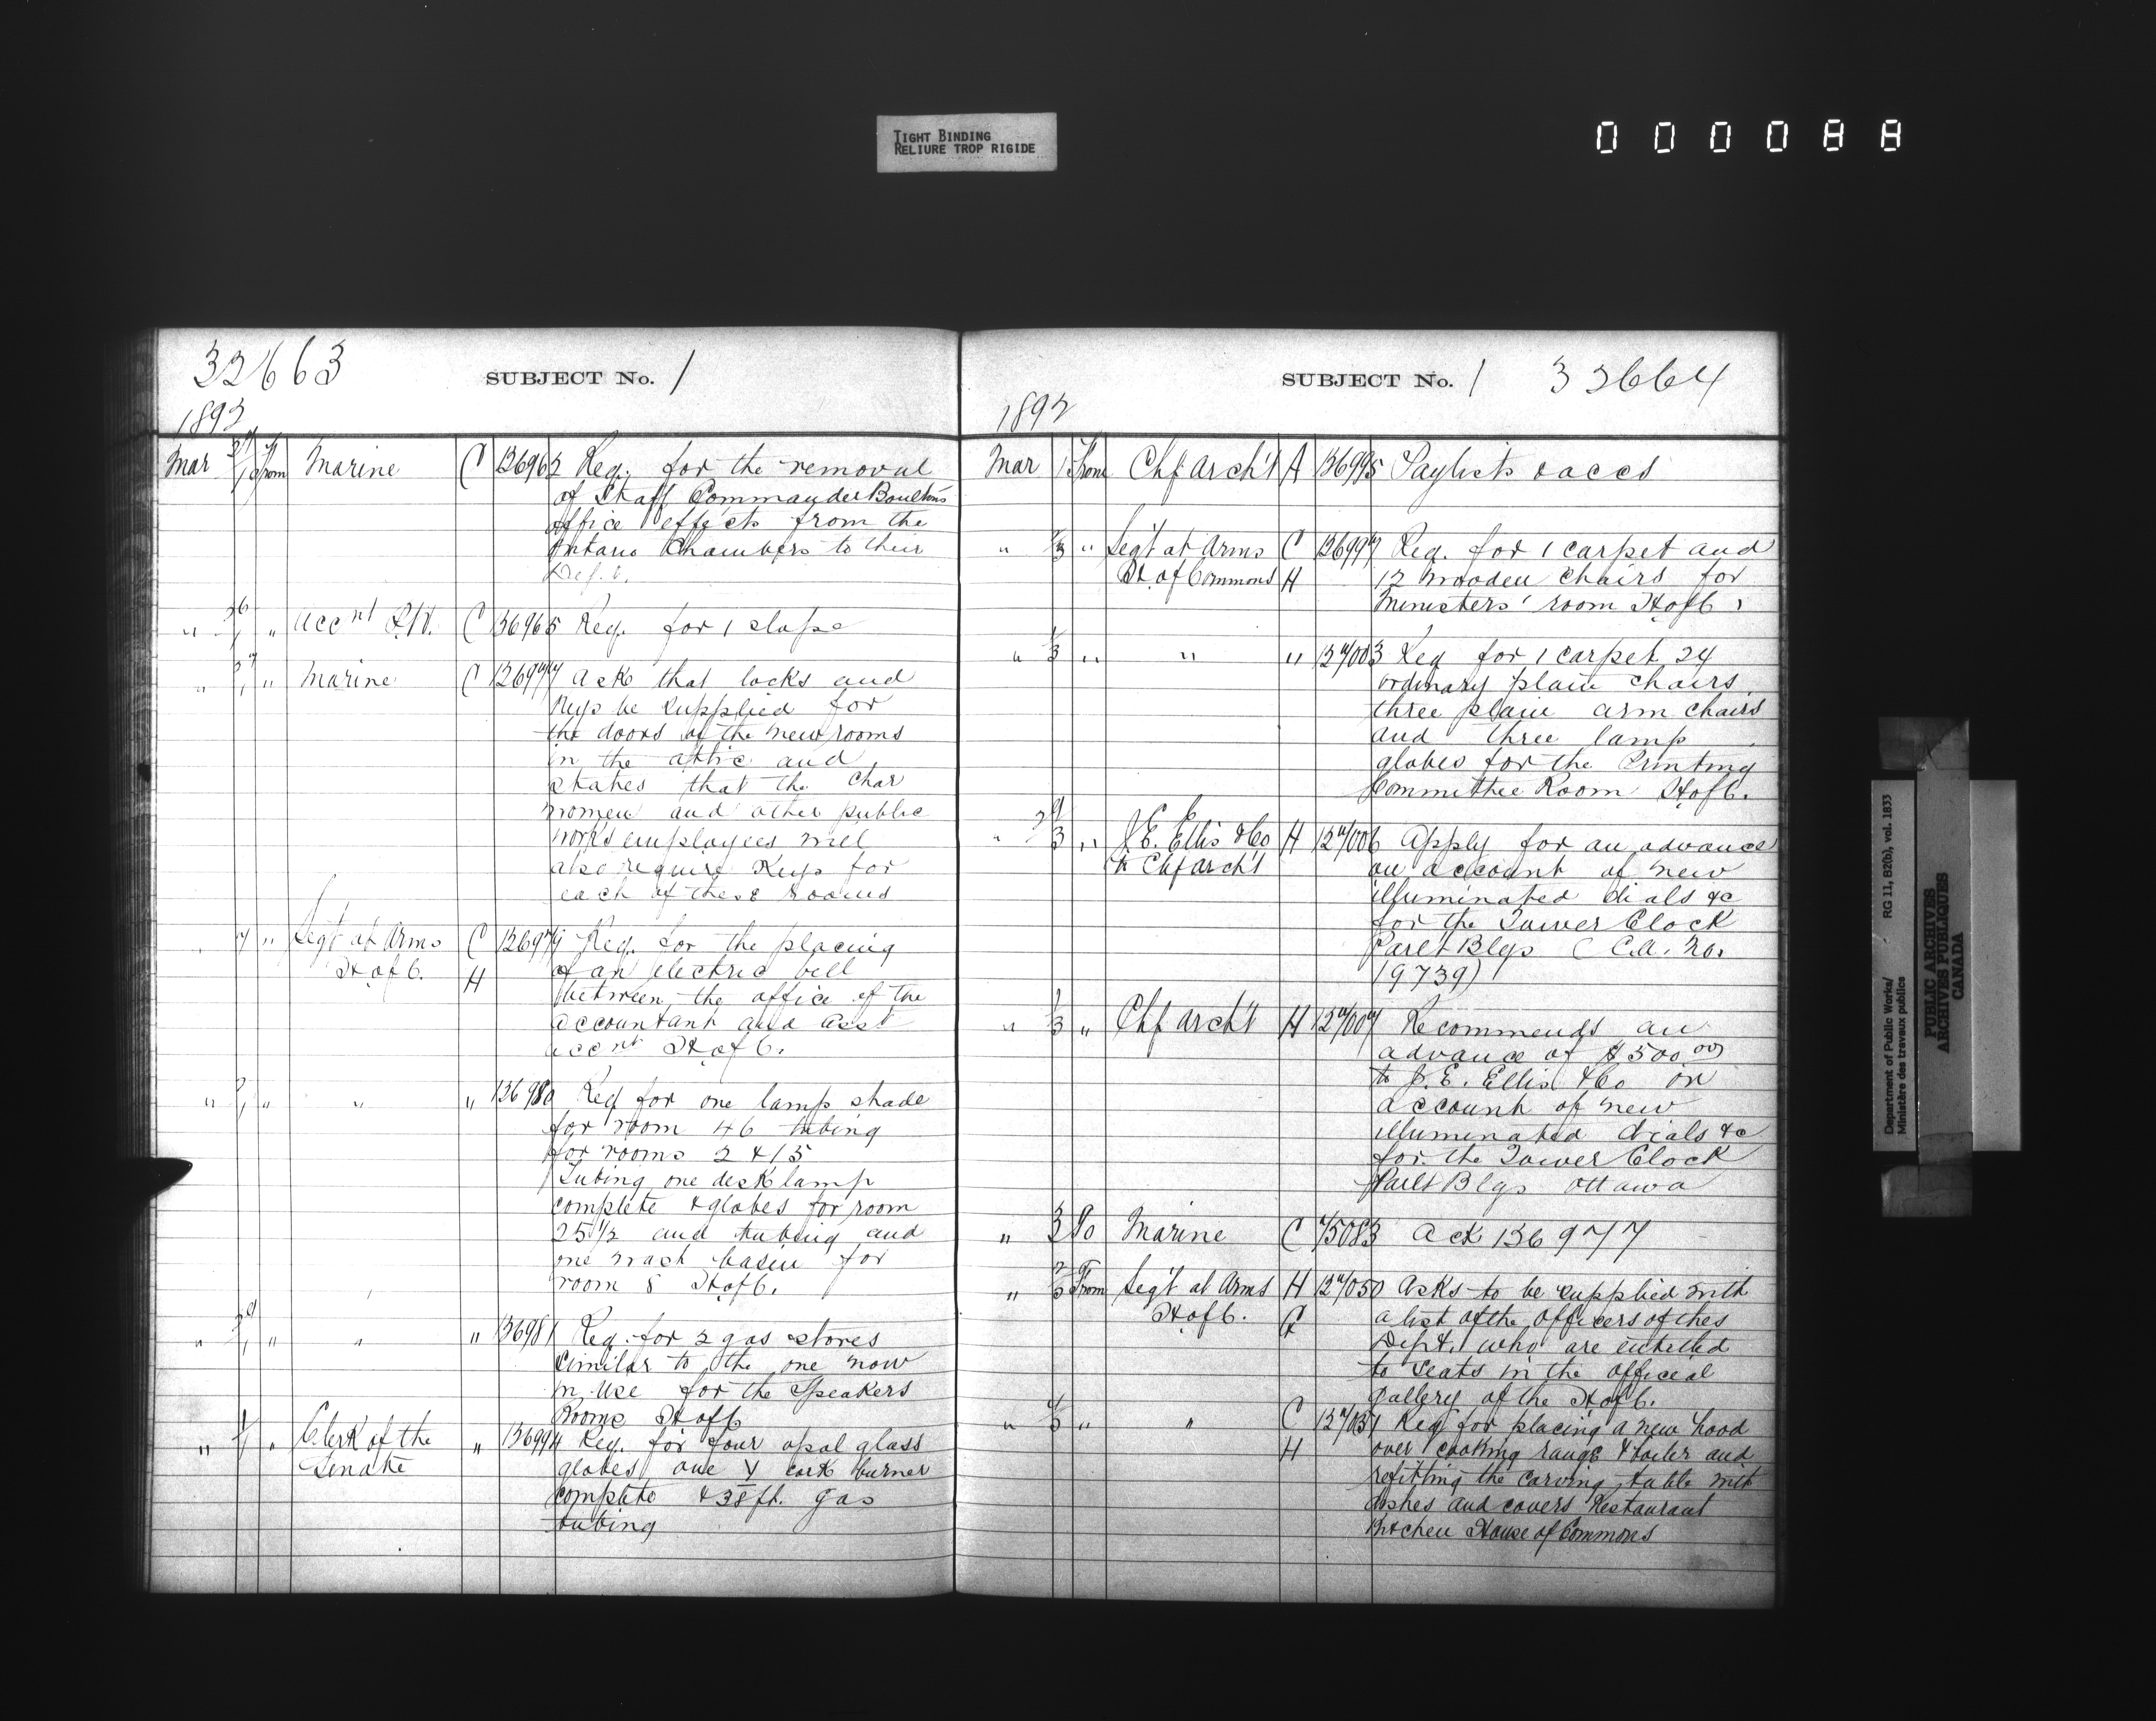 TIGHT BINDING
RELIURE TROP RIGIDE
000088
32663
SUBJECT No. 1
1892
Mar 27/1 From Marine C 136962 Req. for the removal
of Staff Commander Boulton's
office effects from the
Ontario Chambers to their
Dept.
" 26/1 " Acc nt C 136965 Req. for 1 slope
" 27/1 " Marine C 136977 Ask that locks and
Keys be supplied for
the doors of the new rooms
in the attic and
states that the char
women and other public
works employees will
also require Keys for
each of these rooms
" " Segt at Arms C 136979 Req. for the placing
H of C. H of an electric bell
between the office of the
accountant and asst
accnt H of C.
" 2/1 " " " 136980 Req for one lamp shade
for room 46 tubing
for rooms 2 & 15
Tubing one desk lamp
complete & globes for room
25 1/2 and tubing and
one wash basin for
room 8 H of C.
" 29/1 " " " 136981 Req. for 2 gas stoves
similar to the one now
in use for the Speakers
Rooms H of C
" 1/1 " Clerk of the " 136994 Req. for four opal glass
Senate globes one Y cork burner
complete & 38 ft. gas
tubing
SUBJECT No. 1 32664
1892
Mar 1 From Chf Arch't A 136995 Paylists & accs
" 2/3 " Segt at Arms C 136997 Req. for 1 carpet and
H. of Commons H 12 wooden chairs for
Ministers' room H of C.
" 1/3 " " " 137003 Req for 1 carpet 24
ordinary plain chairs
three plain arm chairs
and three lamp
globes for the Printing
Committee Room H of C.
" 29/3 " J. E. Ellis & Co H 137006 Apply for an advance
to Chf Arch't on account of new
illuminated dials &c
for the Tower Clock
Parlt Blgs (C.A. No.
19739)
" 1/3 " Chf Arch't H 137007 Recommends an
advance of $500.00
to J. E. Ellis & Co on
account of new
illuminated dials &c
for the Tower Clock
Parlt Blgs Ottawa
" 3/3 To Marine C 75083 Ack 136977
" 2/3 From Segt at Arms H 137050 Asks to be supplied with
H of C. C a list of the officers of this
Dept. who are entitled
to seats in the official
gallery of the H of C.
" 4/3 " " C 137051 Req for placing a new hood
H over cooking range & boiler and
refitting the carving table with
dishes and covers Restaurant
Kitchen House of Commons
Department of Public Works/
Ministère des travaux publics
RG 11, B2(b), vol. 1833
PUBLIC ARCHIVES
ARCHIVES PUBLIQUES
CANADA